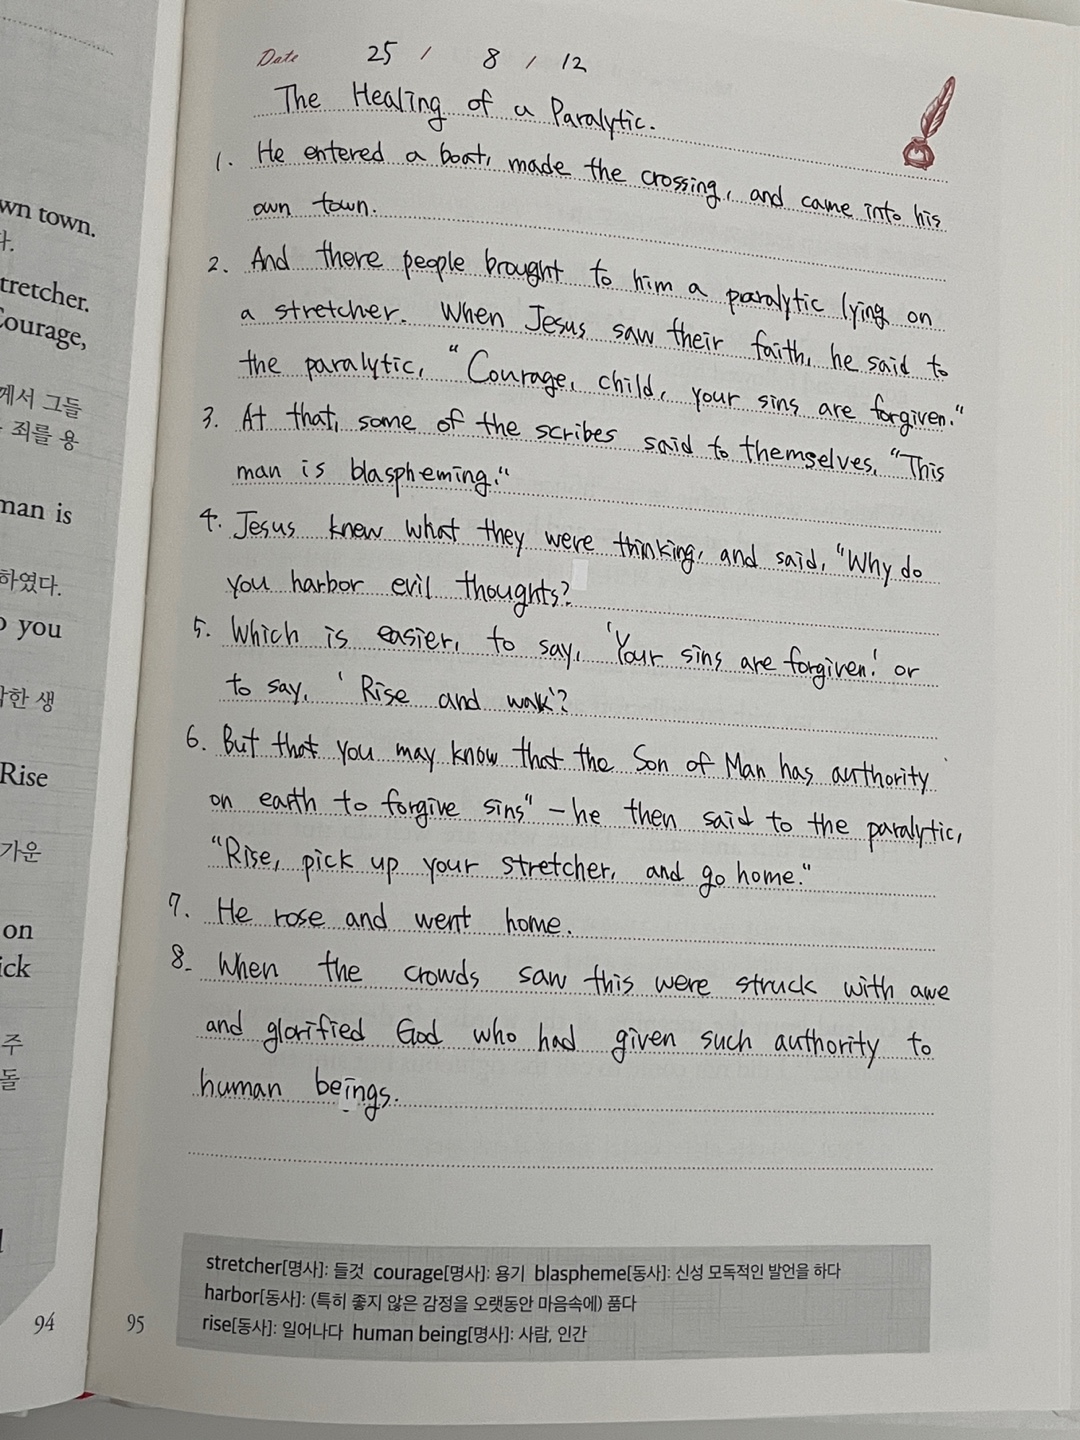 Date 25 / 8 / 12
The Healing of a Paralytic.
1. He entered a boat, made the crossing, and came into his
own town.
2. And there people brought to him a paralytic lying on
a stretcher. When Jesus saw their faith, he said to
the paralytic, "Courage, child, your sins are forgiven."
3. At that, some of the scribes said to themselves, "This
man is blaspheming."
4. Jesus knew what they were thinking, and said, "Why do
you harbor evil thoughts?
5. Which is easier, to say, 'Your sins are forgiven.' or
to say, 'Rise and walk'?
6. But that you may know that the Son of Man has authority
on earth to forgive sins" - he then said to the paralytic,
"Rise, pick up your stretcher, and go home."
7. He rose and went home.
8. When the crowds saw this were struck with awe
and glorified God who had given such authority to
human beings.
stretcher[명사]: 들것 courage[명사]: 용기 blaspheme[동사]: 신성 모독적인 발언을 하다
harbor[동사]: (특히 좋지 않은 감정을 오랫동안 마음속에) 품다
rise[동사]: 일어나다 human being[명사]: 사람, 인간
95
wn town.
다.
tretcher.
Courage,
께서 그들
죄를 용
man is
하였다.
you
악한 생
Rise
가운
on
ick
주
돌
94